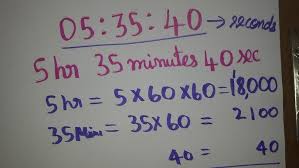 05:35:40 → seconds
5 hr 35 minutes 40 sec
5hr = 5x60x60 = 18,000
35Min = 35x60 = 2100
40 = 40